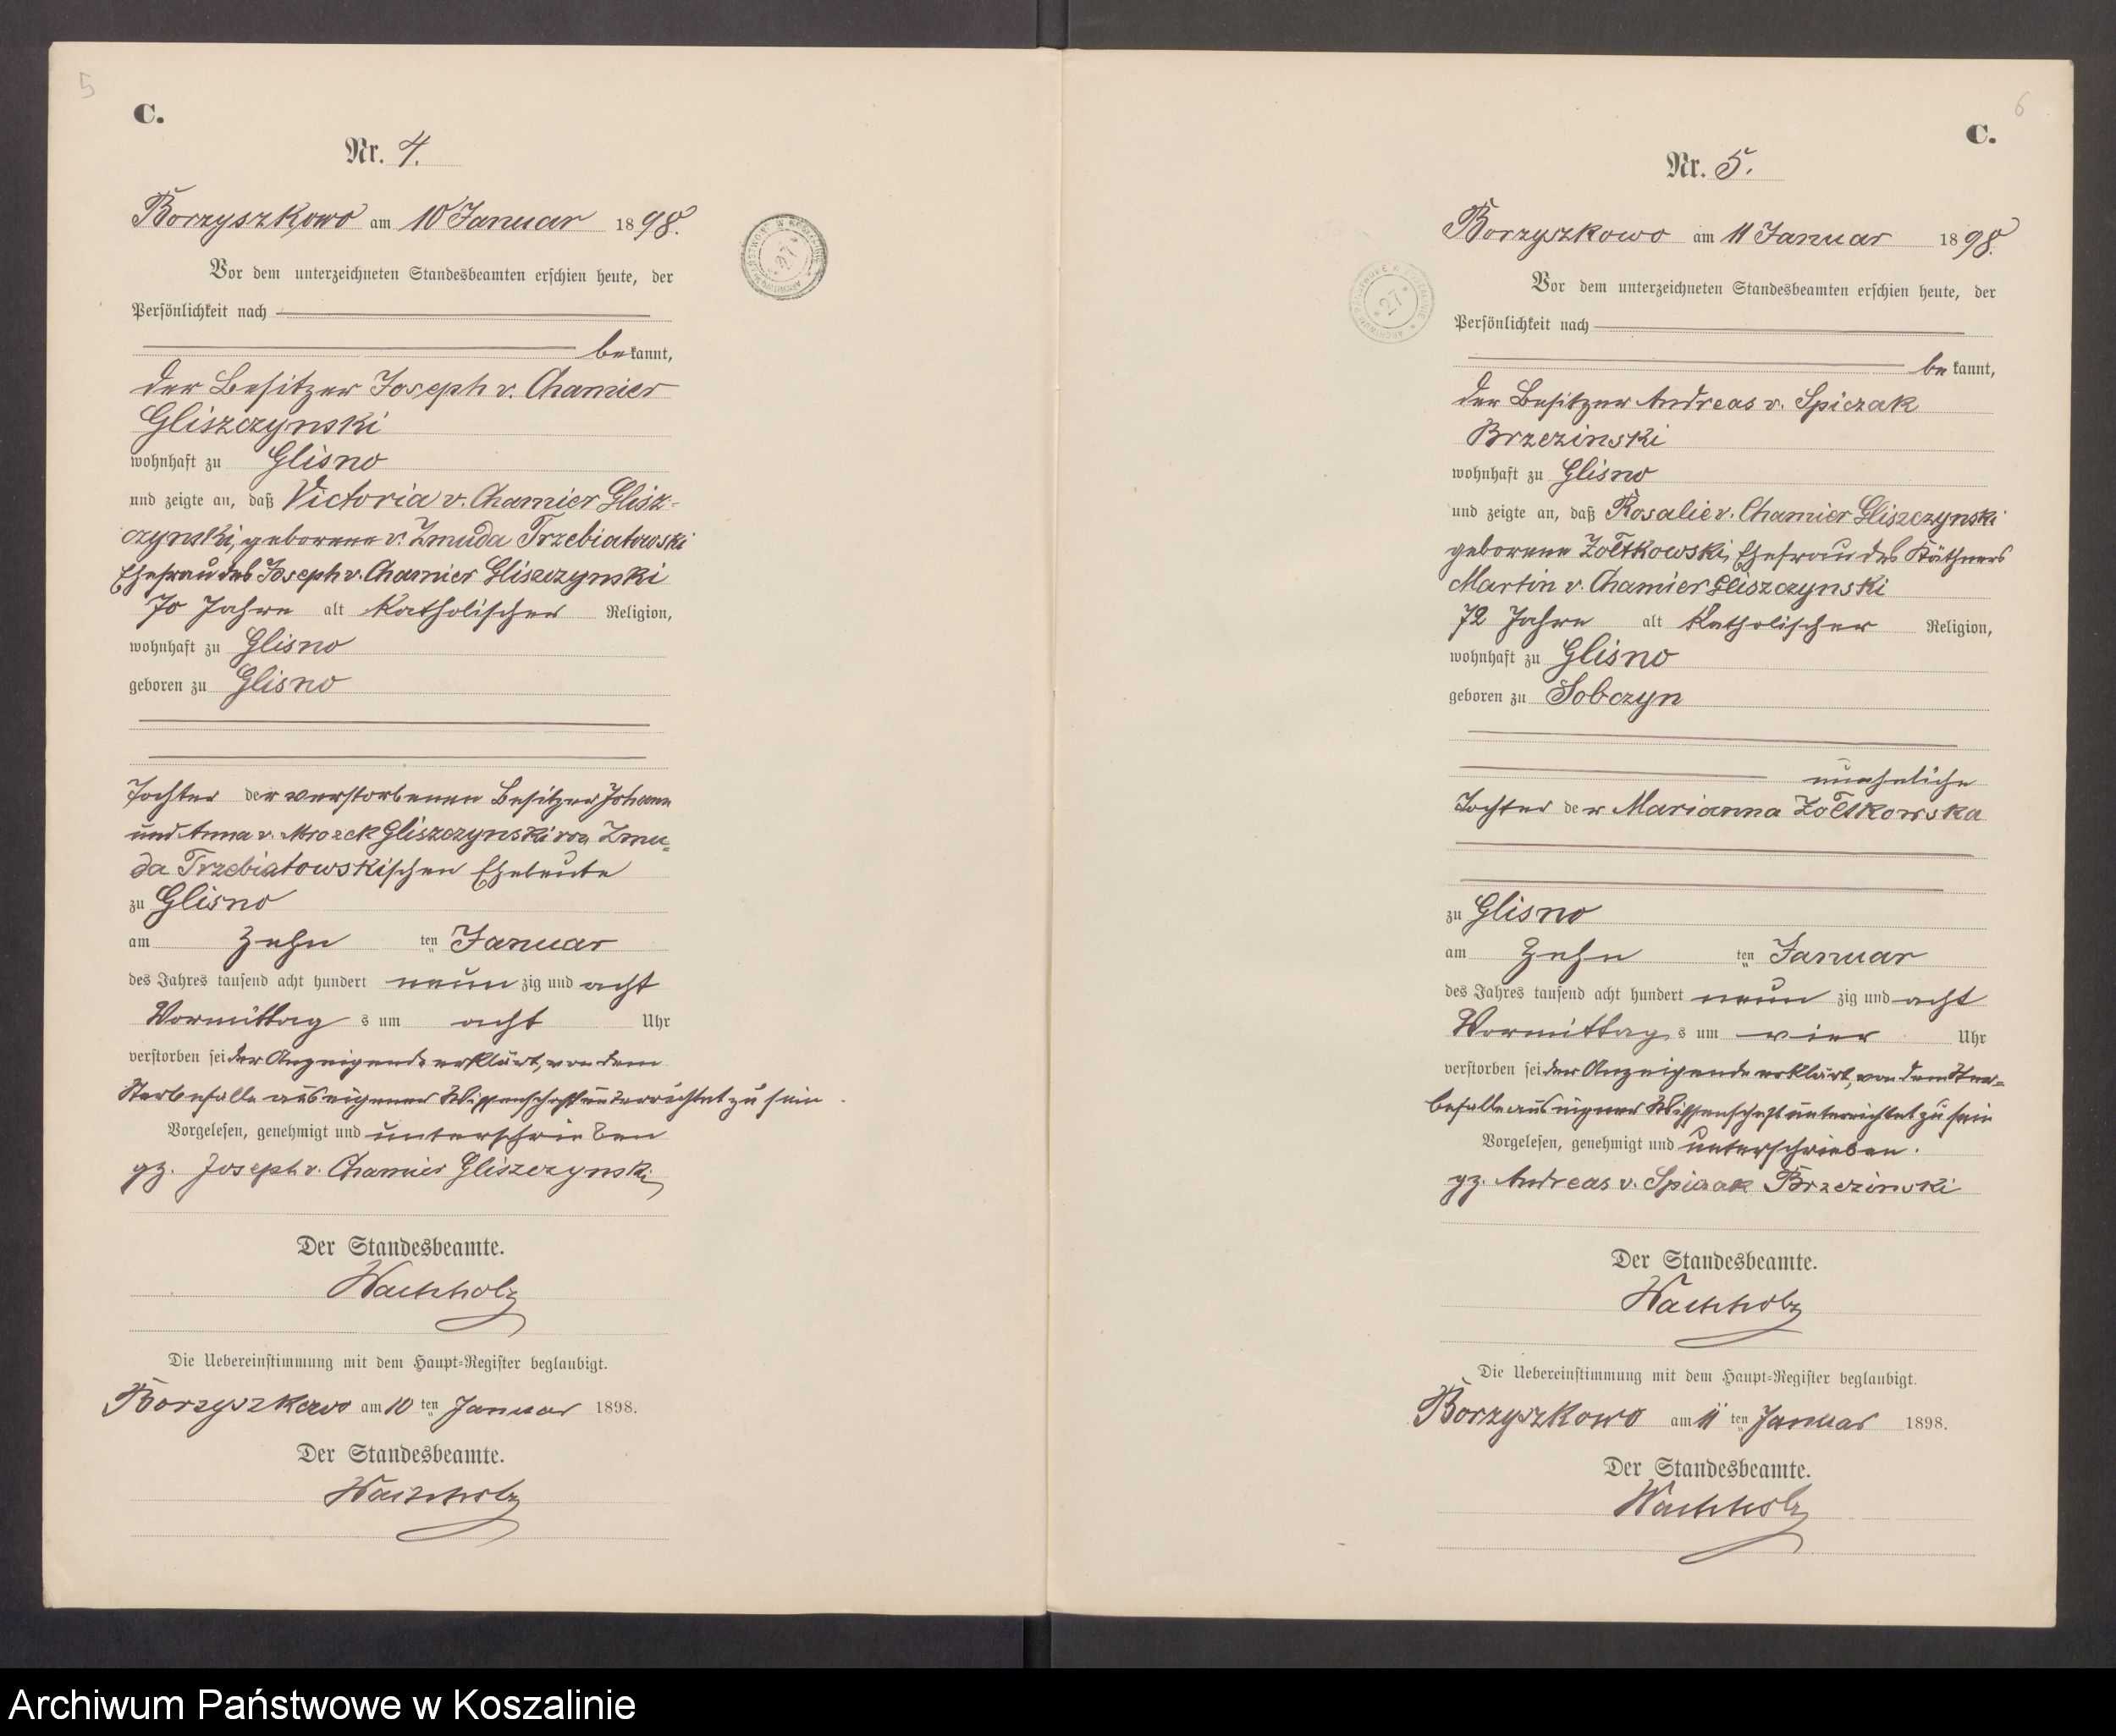 5
C.
Nr. 4.
Borzyszkowo am 10 Januar 1898.
Vor dem unterzeichneten Standesbeamten erschien heute, der
Persönlichkeit nach
bekannt,
der Besitzer Joseph v. Chamier
Gliszczynski
wohnhaft zu Glisno
und zeigte an, daß Victoria v. Chamier Glisz-
czynski, geborene v. Zmuda Trzebiatowski
Ehefrau des Joseph v. Chamier Gliszczynski
70 Jahre alt katholischer Religion,
wohnhaft zu Glisno
geboren zu Glisno
Tochter der verstorbenen Besitzer Johann
und Anna v. Mrozek Gliszczynski von Zmu-
da Trzebiatowskischen Eheleute
zu Glisno
am Zehn ten Januar
des Jahres tausend acht hundert neun zig und acht
Vormittag s um acht Uhr
verstorben sei der Anzeigende erklärt, von dem
Sterbefalle aus eigener Wissenschaft unterrichtet zu sein
Vorgelesen, genehmigt und unterschrieben
gz. Joseph v. Chamier Gliszczynski
Der Standesbeamte.
Wachholz
Die Uebereinstimmung mit dem Haupt-Register beglaubigt.
Borzyszkowo am 10 ten Januar 1898.
Der Standesbeamte.
Wachholz
27
6
C.
Nr. 5.
Borzyszkowo am 11 Januar 1898.
Vor dem unterzeichneten Standesbeamten erschien heute, der
Persönlichkeit nach
bekannt,
der Besitzer Andreas v. Spiczak
Brzezinski
wohnhaft zu Glisno
und zeigte an, daß Rosalie v. Chamier Gliszczynski
geborene Zołtkowski, Ehefrau des Käthners
Martin v. Chamier Gliszczynski
72 Jahre alt katholischer Religion,
wohnhaft zu Glisno
geboren zu Sobczyn
uneheliche
Tochter der Marianna Zołtkowska
zu Glisno
am Zehn ten Januar
des Jahres tausend acht hundert neun zig und acht
Vormittag s um vier Uhr
verstorben sei der Anzeigende erklärt, von dem Ster-
befalle aus eigener Wissenschaft unterrichtet zu sein
Vorgelesen, genehmigt und unterschrieben.
gz. Andreas v. Spiczak Brzezinski
Der Standesbeamte.
Wachholz
Die Uebereinstimmung mit dem Haupt-Register beglaubigt.
Borzyszkowo am 11 ten Januar 1898.
Der Standesbeamte.
Wachholz
27
Archiwum Państwowe w Koszalinie